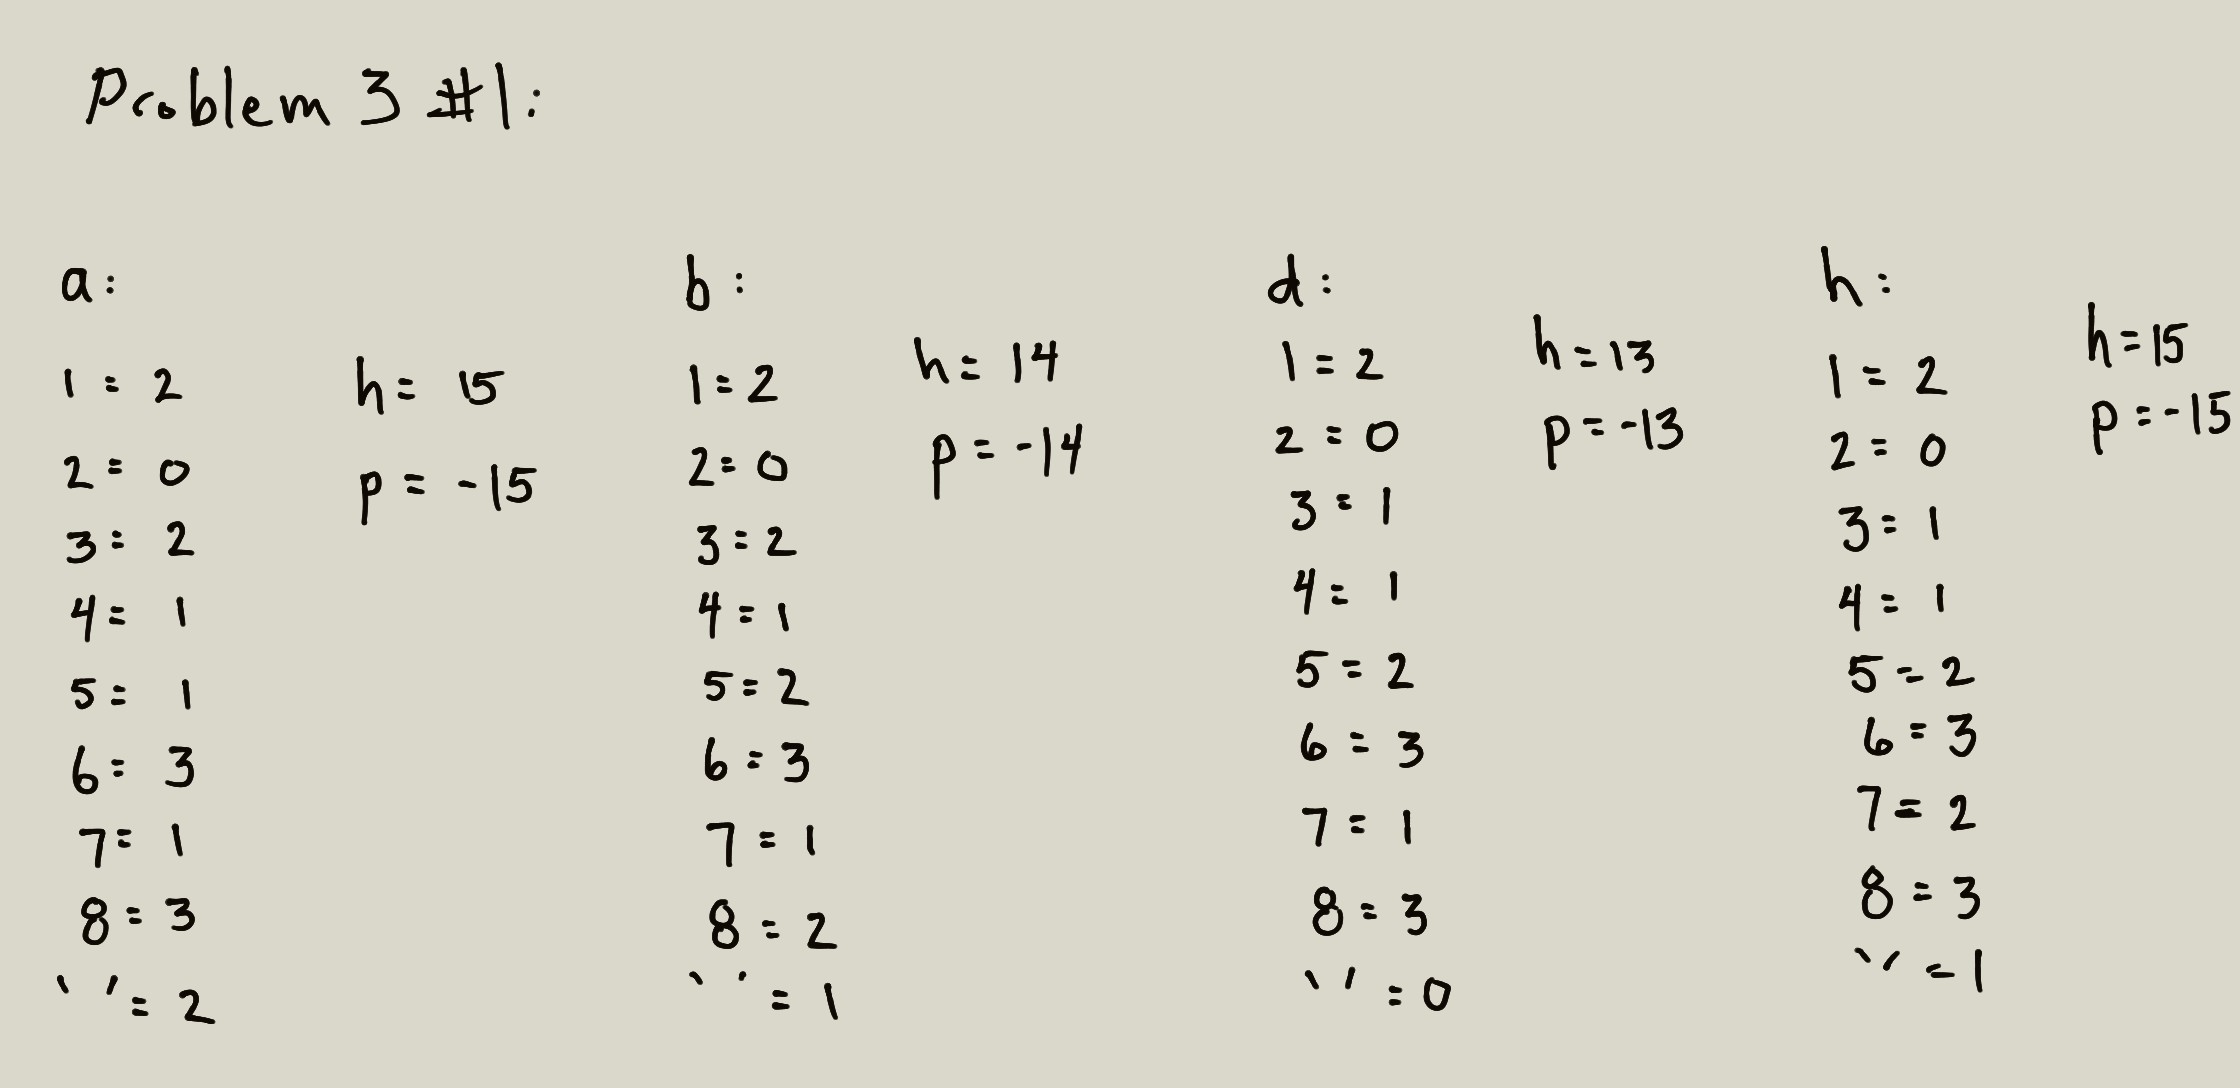 Problem 3 #1:
a:
1 = 2
2 = 0
3 = 2
4 = 1
5 = 1
6 = 3
7 = 1
8 = 3
' ' = 2
h = 15
p = -15
b:
1 = 2
2 = 0
3 = 2
4 = 1
5 = 2
6 = 3
7 = 1
8 = 2
' ' = 1
h = 14
p = -14
d:
1 = 2
2 = 0
3 = 1
4 = 1
5 = 2
6 = 3
7 = 1
8 = 3
' ' = 0
h = 13
p = -13
h:
1 = 2
2 = 0
3 = 1
4 = 1
5 = 2
6 = 3
7 = 2
8 = 3
' ' = 1
h = 15
p = -15